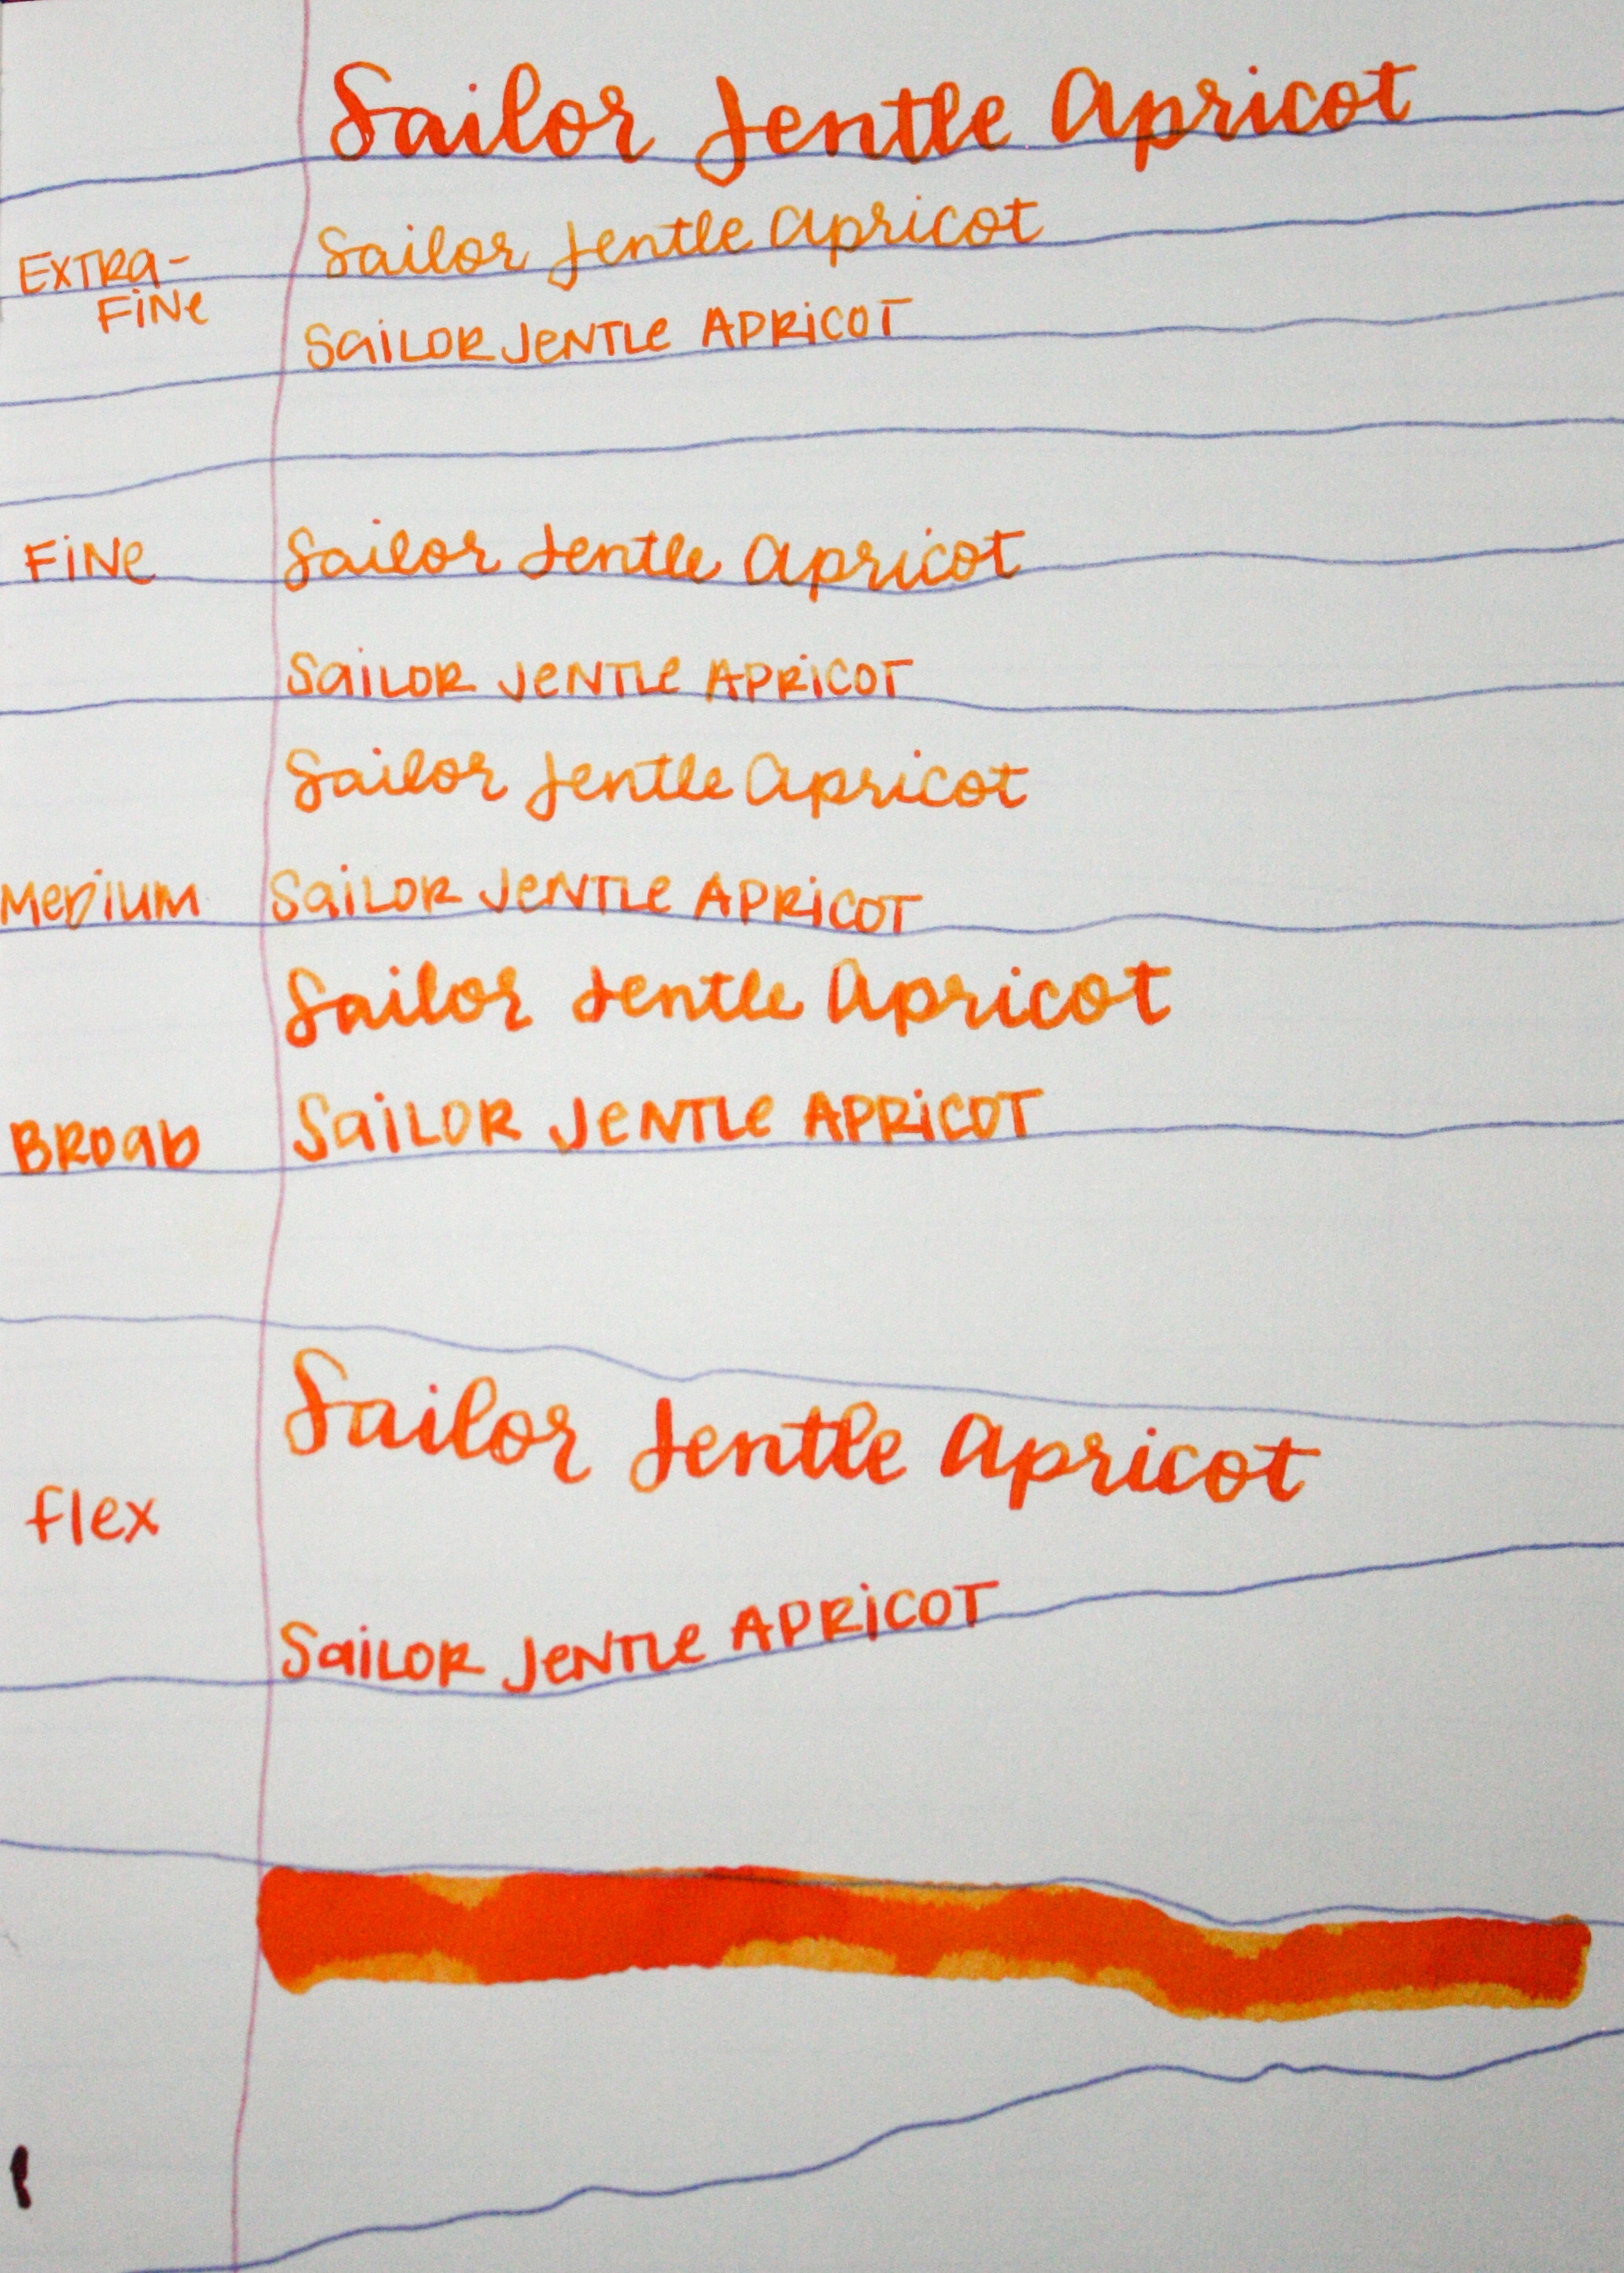 Sailor Jentle Apricot
Sailor Jentle Apricot
EXTRA-
FiNe
SaiLOR JeNTLe APRiCOT
FiNe Sailor Jentle Apricot
SaiLOR JeNTLe APRiCOT
Sailor Jentle Apricot
MeDiUM SaiLOR JeNTLe APRiCOT
Sailor Jentle Apricot
BROaD SaiLOR JeNTLe APRiCOT
Sailor Jentle Apricot
flex
SaiLOR JeNTLe APRiCOT